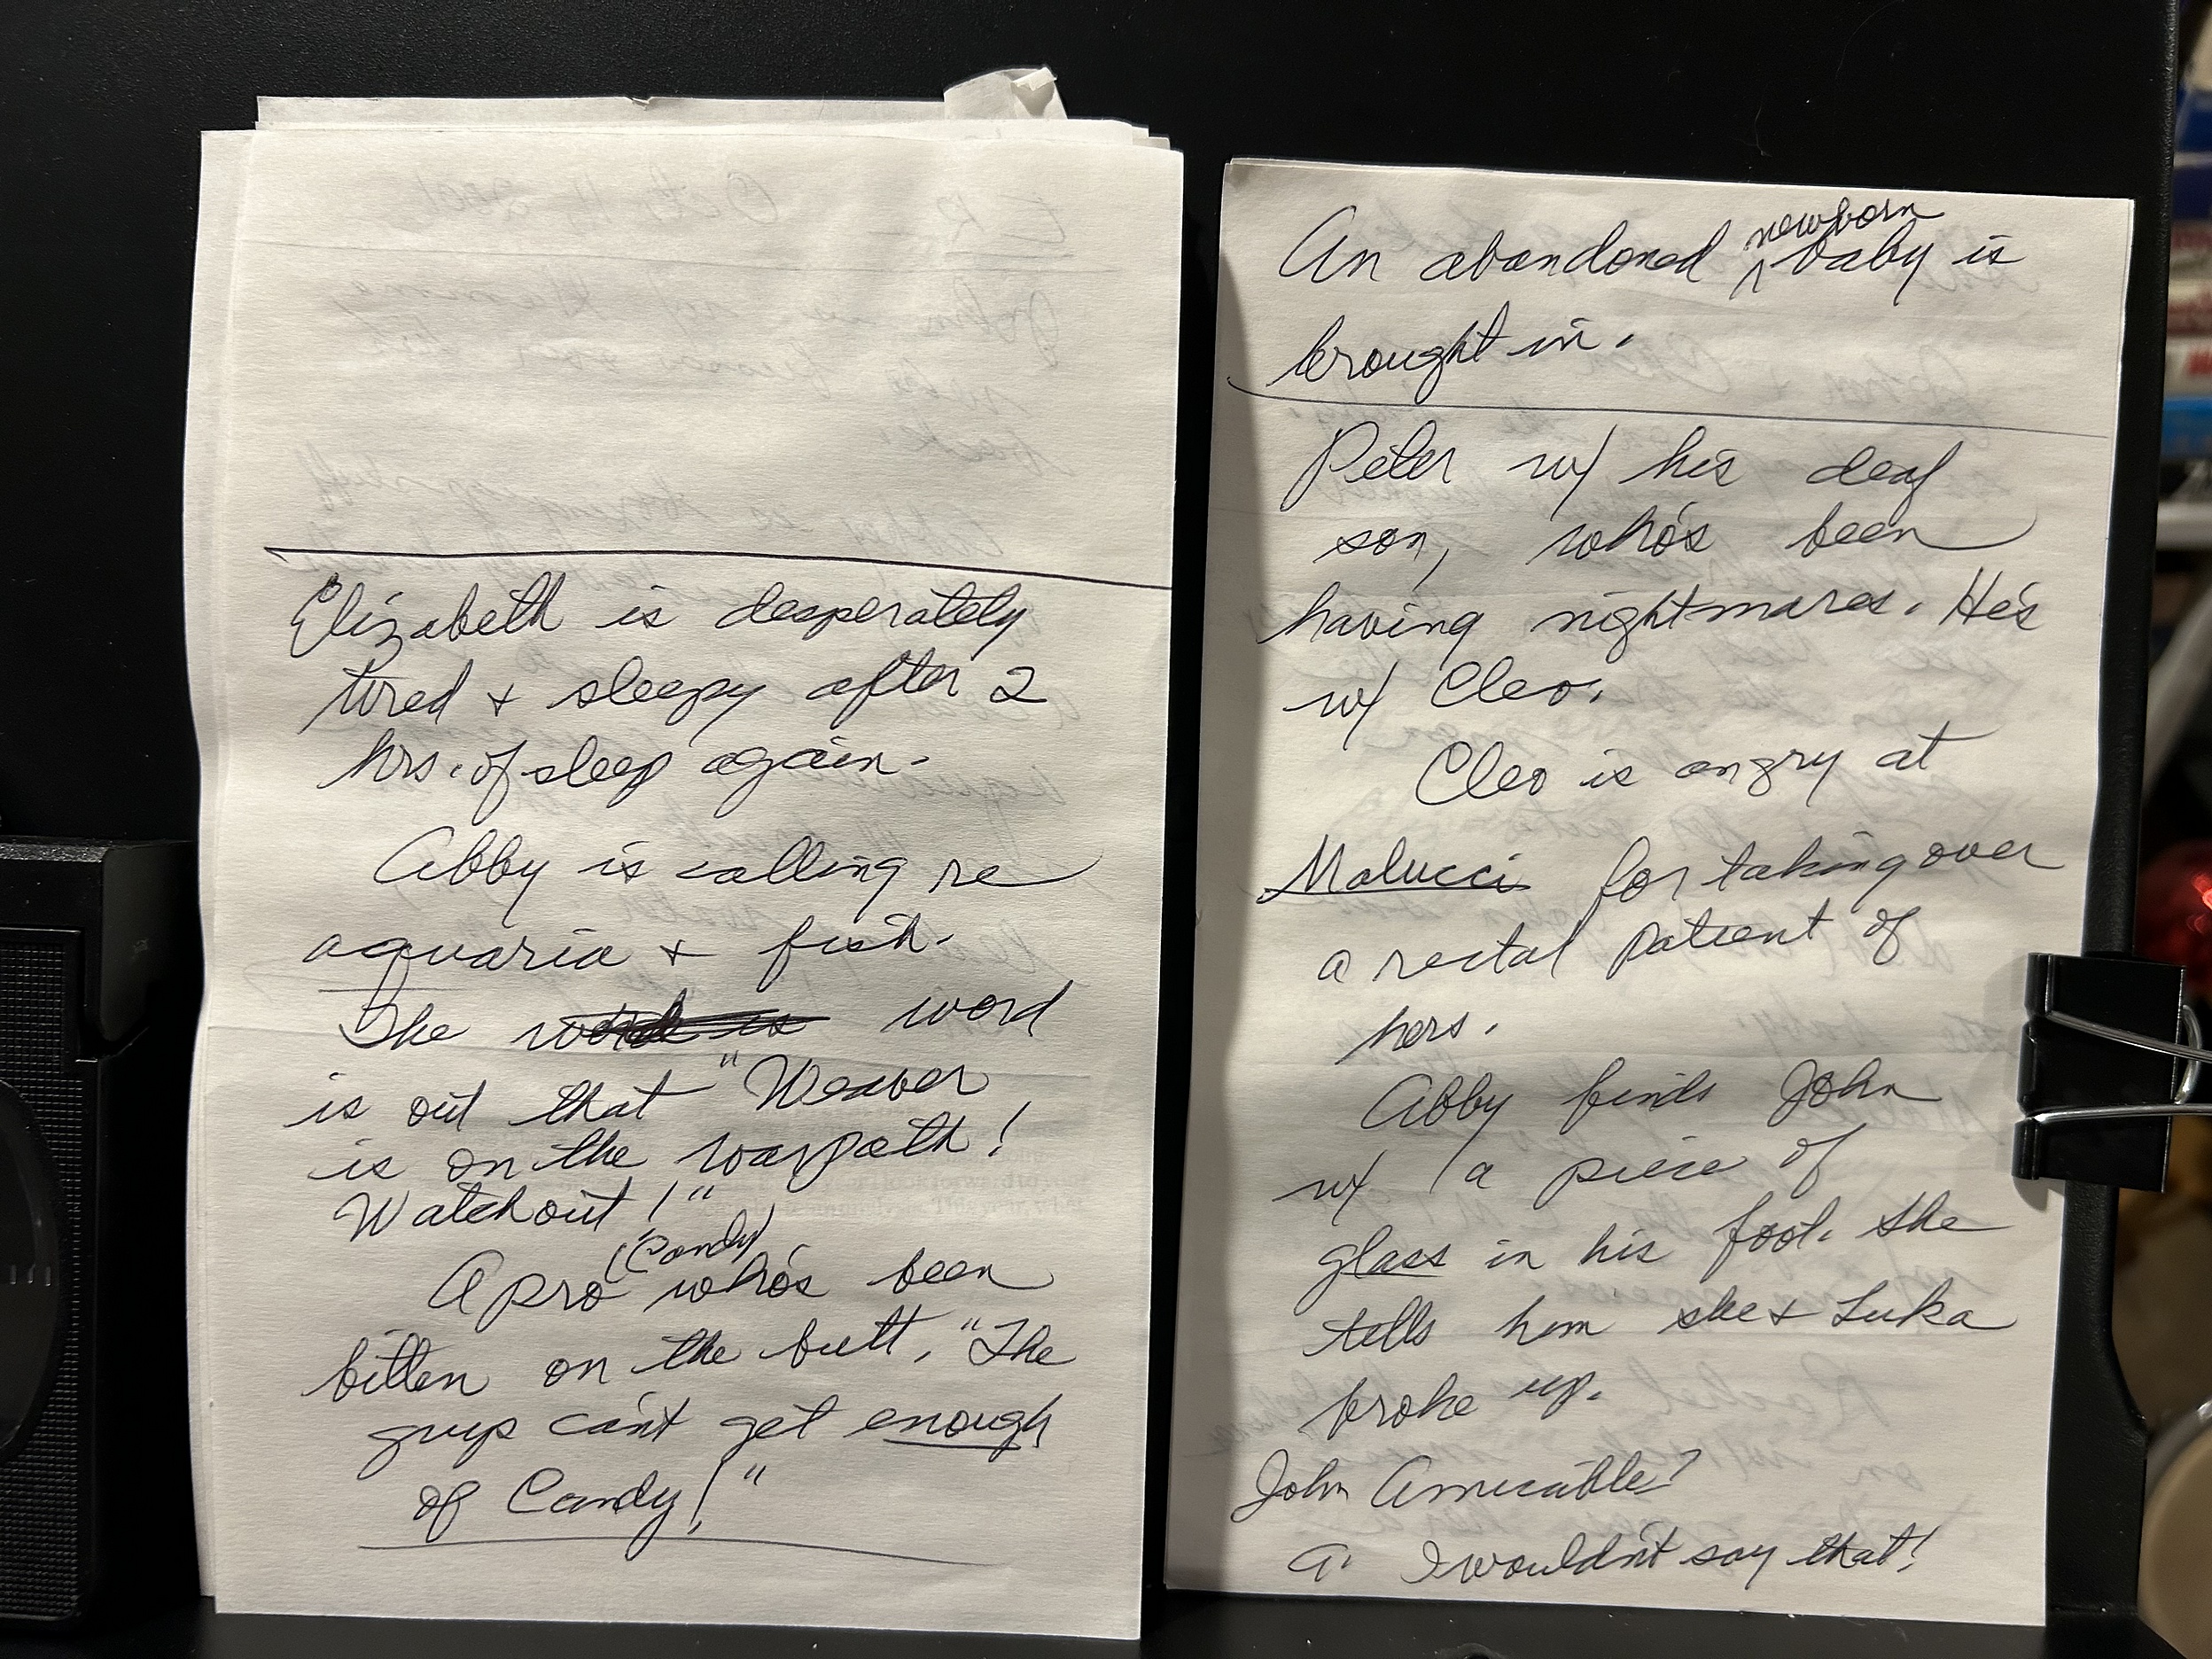 Elizabeth is desperately
tired + sleepy after 2
hrs. of sleep again.
Abby is calling re
aquaria + fish.
The word is word
is out that "Weaver
is on the warpath!
Watch out!"
A pro (Candy) who's been
bitten on the butt, "The
guys can't get enough
of Candy!"
An abandoned newborn baby is
brought in.
Peter w/ his deaf
son, who's been
having nightmares. He's
w/ Cleo.
Cleo is angry at
Malucci for taking over
a rectal patient of
hers.
Abby finds John
w/ a piece of
glass in his foot. She
tells him she + Luka
broke up.
John Amicable?
A. I wouldn't say that!